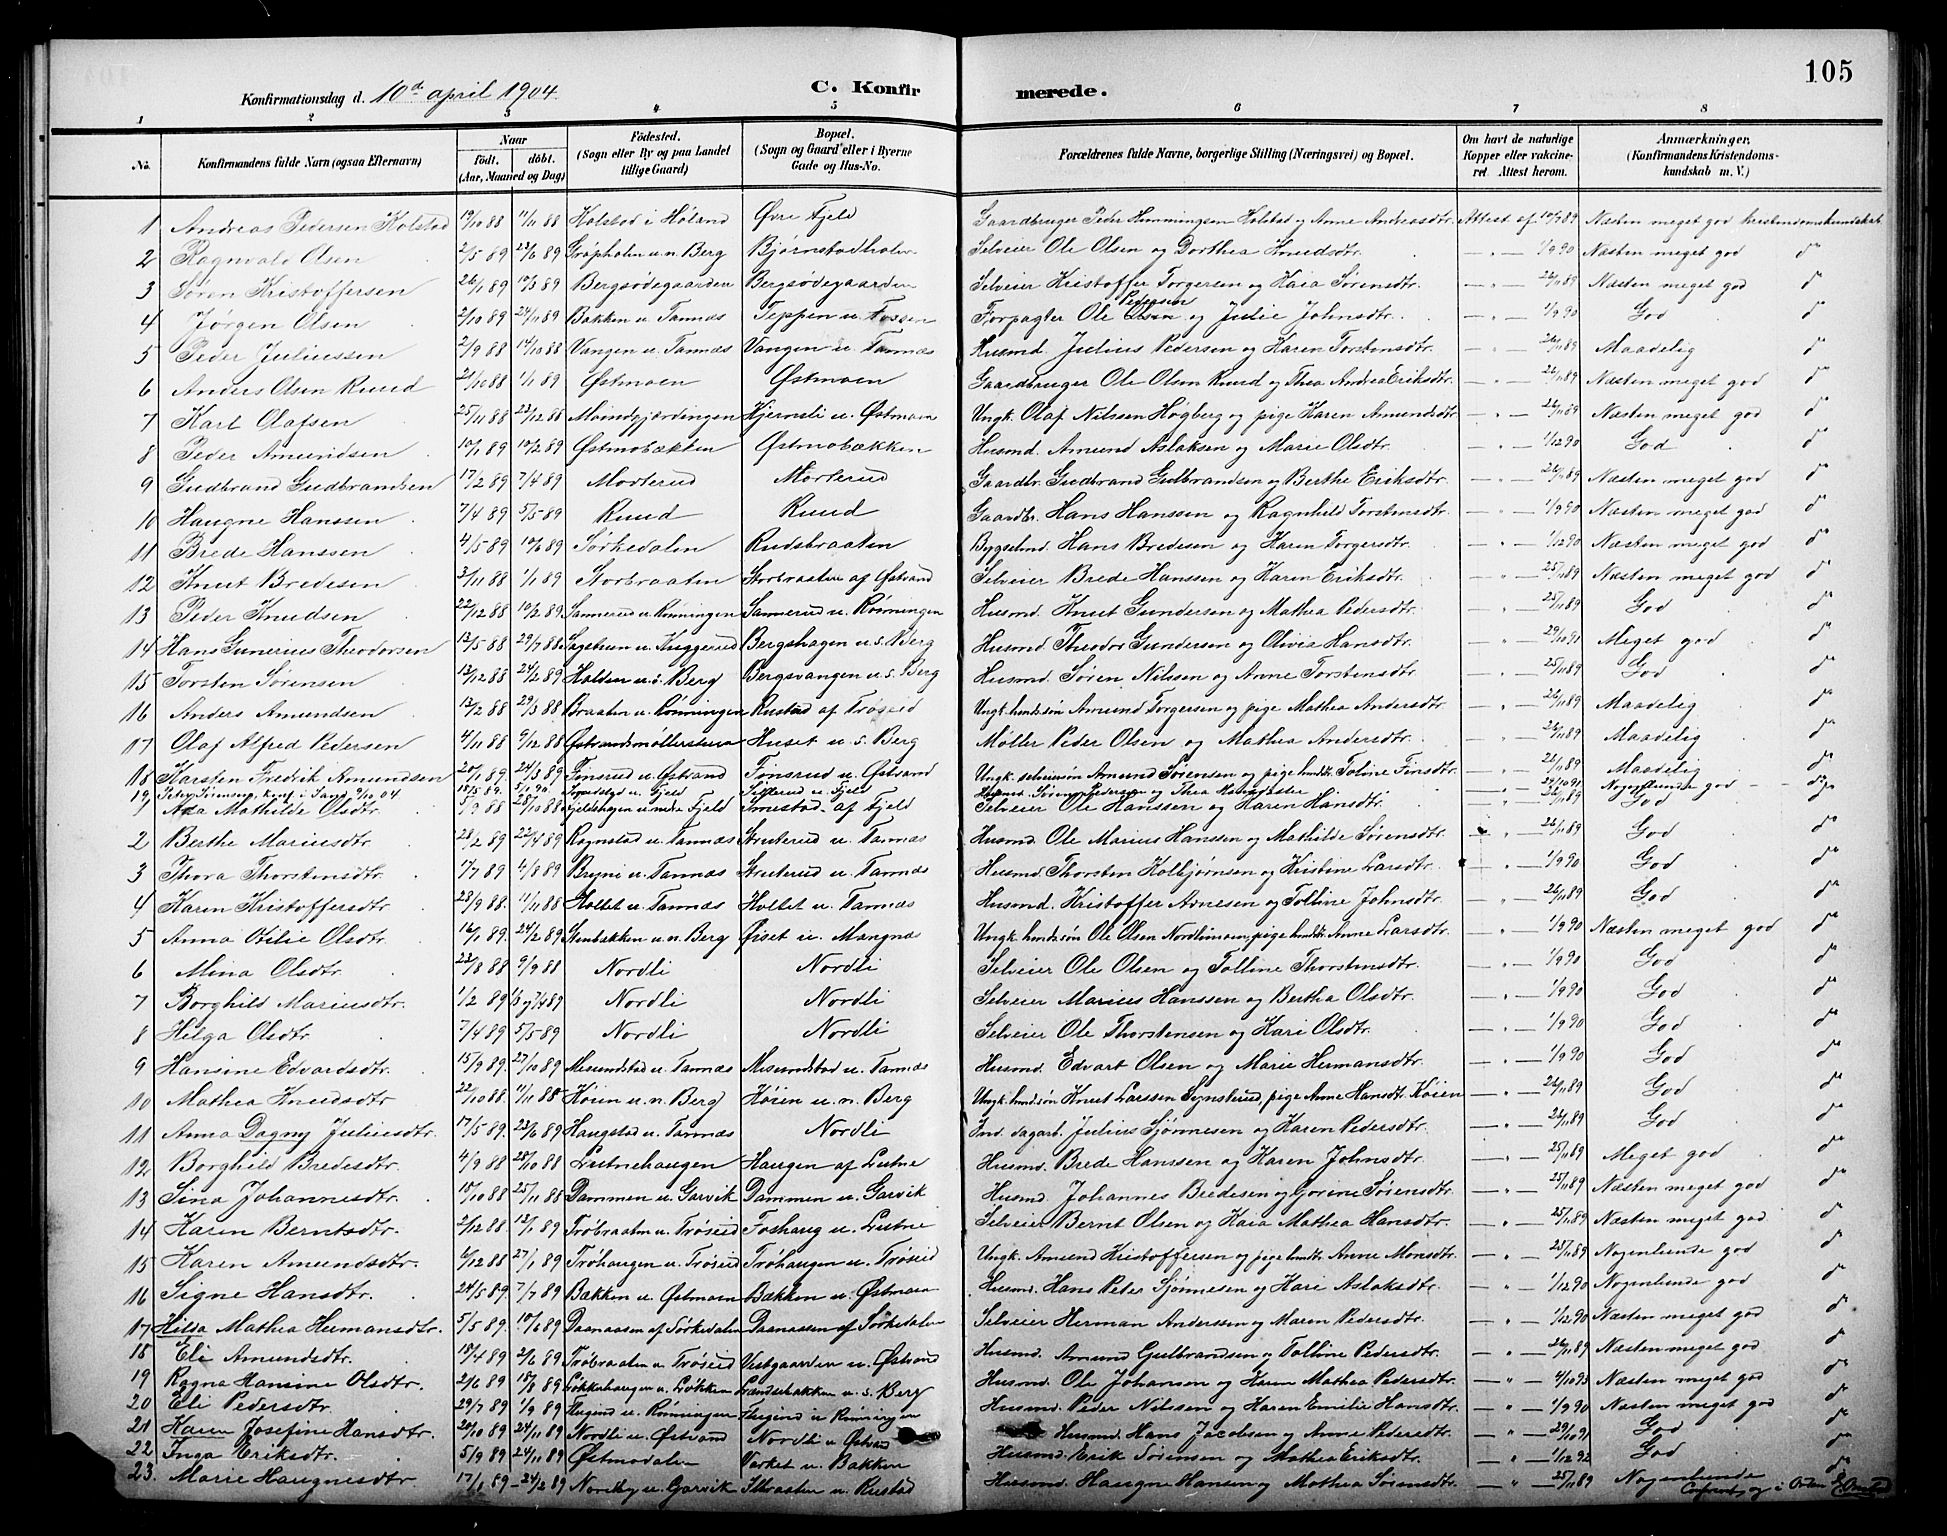 105
Konfirmationsdag d. 10de april 1904. C. Konfirmerede.
1 2 3 4 5 6 7 8
No. Konfirmandens fulde Navn (ogsaa Efternavn) Naar födt. döbt. (Aar, Maaned og Dag) Födested. (Sogn eller By og paa Landet tillige Gaard) Bopæl. (Sogn og Gaard eller i Byerne Gade og Hus-No. Forældrenes fulde Navne, borgerlige Stilling (Næringsvei) og Bopæl. Om havt de naturlige Kopper eller vakcineret Attest herom. Anmærkninger. (Konfirmandens Kristendomskundskab m. V.)
1 Andreas Pedersen Kolstad 19/10 88 11/11 88 Kolstad i Høland Øvre Fjeld Gaardbruger Peder Hemmingsen Kolstad og Anne Andreasdtr. Attest af 10/7 89 Næsten meget god kristendomskundskab
2 Ragnvald Olsen 2/5 89 23/6 89 Grøpholen u. n. Berg Bjørnstadholen Selveier Ole Olsen og Dorthea Knudsdtr. — " — 1/9 90 Næsten meget god do
3 Søren Kristoffersen 26/1 89 10/3 89 Bergsødegaarden Bergsødegaarden Selveier Kristoffer Torgersen og Kaia Sørensdtr. — " — 26/11 89 Næsten meget god do
4 Jørgen Olsen 2/10 89 24/11 89 Bakken u. Tannæs Teppen u. Fossen Forpagter Ole Pedersen og Julie Johnsdtr. — " — 1/9 90 God do
5 Peder Juliussen 2/9 88 14/10 88 Vangen u. Tannæs Vangen u. Tannæs Husmd. Julius Pedersen og Karen Torstensdtr. — " — 26/11 89 Maadelig do
6 Anders Olsen Ruud 21/10 88 1/1 89 Østmoen Østmoen Gaardbruger Ole Olsen Ruud og Thea Andrea Eriksdtr. — " — 26/11 89 Næsten meget god do
7 Karl Olafsen 25/11 88 23/12 88 Moindfjærdingen Kjernsli u. Østmoen Ungk. Olaf Nilssen Høgberg og pige Karen Amundsdtr. — " — 26/11 89 Næsten meget god do
8 Peder Amundsen 10/1 89 10/2 89 Østmobækken Østmobækken Husmd. Amund Aslaksen og Marie Olsdtr. — " — 1/12 90 God do
9 Gudbrand Gudbrandsen 17/2 89 7/4 89 Morterud Morterud Gaardbr. Gudbrand Gulbrandsen og Berthe Eriksdtr. — " — 26/11 89 Næsten meget god do
10 Haugne Hanssen 7/4 89 5/5 89 Ruud Ruud Gaardbr. Hans Hanssen og Ragnhild Torstensdtr. — " — 1/9 90 Næsten meget god do
11 Brede Hanssen 4/5 89 10/6 89 Sørkedalen Rudsbraaten Bygselmd. Hans Bredesen og Karen Torgersdtr. — " — 1/12 90 Næsten meget god do
12 Knut Bredesen 3/11 88 1/1 89 Storbraaten Storbraaten af Østrand Selveier Brede Hanssen og Karen Eriksdtr. — " — 25/11 89 Næsten meget god do
13 Peder Knudsen 22/12 88 10/2 89 Sannerud u. Rønningen Sannerud u. Rønningen Husmd. Knut Gundersen og Mathea Pedersdtr. — " — 25/11 89 God do
14 Hans Gunerius Theodorsen 13/5 88 29/7 88 Sagstuen u. Kuggerud Bergshagen u. s. Berg Husmd. Theodor Gundersen og Olivia Hansdtr. — " — 29/10 91 Meget god do
15 Torsten Sørensen 13/12 88 24/2 89 Holden u. s. Berg Bergsvangen u. s. Berg Husmd. Søren Nilssen og Anne Torstensdtr. — " — 25/11 89 God do
16 Anders Amundsen 12/2 88 29/3 88 Braaten u. Rønningen Rustad af Trøseid Ungk. husmdssøn Amund Torgersen og pige Mathea Andersdtr. — " — 26/11 89 Maadelig do
17 Olaf Alfred Pedersen 4/11 88 9/12 88 Østrandsmøllerstuen Huset u. s. Berg Møller Peder Olsen og Mathea Andersdtr. — " — 26/11 89 Maadelig do
18 Karsten Fredrik Amundsen 20/1 89 24/3 89 Finsrud u. Østrand Finsrud u. Østrand Ungk. selveiersøn Amund Sørensen og pige husmdtr. Toline Finsdtr. — " — 26/11 89 Maadelig do
19 Peter Sørensen, konf. i Sand 9/10 04 15/5 89 Fjeld u. Fjeld Husmd. Søren Pedersen og Thea 29/10 91 Nogenlunde god do
1 Aaa Mathilde Olsdtr. 5/9 88 28/10 88 Fjeldshagen u. nedre Fjeld Smestad af Fjeld Selveier Ole Hanssen og Karen Hansdtr. — " — 26/11 89 God
2 Berthe Mariusdtr. 28/2 89 22/4 89 Rognstad u. Tannæs Struterud u. Tannæs Husmd. Ole Marius Hanssen og Mathilde Sørensdtr. — " — 26/11 89 God do
3 Thora Thorstensdtr. 17/7 89 4/8 89 Bryni u. Tannæs Struterud u. Tannæs Husmd. Thorsten Kolbjørnsen og Kristine Larsdtr. — " — 1/9 90 God do
4 Karen Kristoffersdtr. 23/9 88 11/11 88 Holtet u. Tannæs Holtet u. Tannæs Husmd. Kristoffer Arnesen og Tolline Johnsdtr. — " — 26/11 89 God do
5 Anna Otilie Olsdtr. 16/1 89 24/2 89 Stenbækken u. n. Berg Øiset u. Mangnæs Ungk. husmdssøn Ole Olsen Nordlimoen, pige husmdtr. Anne Larsdtr. — " — 1/9 90 Næsten meget god do
6 Mina Olsdtr. 22/8 88 9/9 88 Nordli Nordli Selveier Ole Olsen og Tolline Thorstensdtr. — " — 1/9 90 God do
7 Borghild Mariusdtr. 1/2 89 1/3 og 7/4 89 Nordli Nordli Selveier Marius Hanssen og Bertha Olsdtr. — " — 1/9 90 God do
8 Hilga Olsdtr. 7/4 89 5/5 89 Nordli Nordli Selveier Ole Thorstensen og Kari Olsdtr. — " — 1/9 90 God do
9 Hansine Edvardsdtr. 15/9 89 27/10 89 Mesundstad u. Tannæs Mesundstad u. Tannæs Husmd. Edvart Olsen og Marie Hermansdtr. — " — 1/9 90 God do
10 Mathea Knudsdtr 22/10 88 11/11 88 Køien u. n. Berg Køien u. n. Berg Ungk. husmdssøn Knut Larssen Synsterud, pige Anne Hansdtr. Køien — " — 26/11 89 God do
11 Anna Dagny Juliusdtr. 17/5 89 23/6 89 Haugstad u. Tannæs Nordli Ind. dagarb. Julius Sjønnesen og Karen Pedersdtr. — " — 26/11 89 God do
12 Borghild Bredesdtr. 4/9 88 28/10 88 Lustnehaugen Haugen af Lustne Husmd. Brede Hanssen og Karen Johnsdtr. — " — 25/11 89 Meget god do
13 Sina Johannesdtr. 15/10 88 25/11 88 Dammen u. Garvik Dammen u. Garvik Husmd. Johannes Bredesen og Gorine Sørensdtr. — " — 25/11 89 Næsten meget god do
14 Karen Berntsdtr. 2/12 88 13/1 89 Trøbraaten u. Trøseid Foshaug u. Lustne Selveier Bernt Olsen og Kaia Mathea Hansdtr. — " — 25/11 89 Næsten meget god do
15 Karen Amundsdtr. 6/12 88 27/1 89 Trøhaugen u. Trøseid Trøhaugen u. Trøseid Ungk. Amund Kristoffersen og pige husmdtr. Anne Monsdtr. — " — 25/11 89 Nogenlunde god do
16 Signe Hansdtr. 24/5 89 7/7 89 Bækken u. Østmoen Bækken u. Østmoen Husmd. Hans Peter Sjønnesen og Kari Aslaksdtr. — " — 1/12 90 Nogenlunde god do
17 Hilda Mathea Hermansdtr. 5/5 89 10/6 89 Daanaasen af Sørkedalen Daanaasen af Sørkedalen Selveier Herman Anderssen og Maren Pedersdtr. — " — 1/12 90 Næsten meget god do
18 Eli Amundsdtr. 15/4 89 2/6 89 Trøbraaten u. Trøseid Vestgaarden u. Østrand Husmd. Amund Gulbrandsen og Tolline Pedersdtr. — " — 26/11 89 Næsten meget god do
19 Ragna Hansine Olsdtr. 2/6 89 18/8 89 Løkkehaugen u. Løkken Lundebakken u. s. Berg Husmd. Ole Johansen og Karen Mathea Pedersdtr. — " — 4/10 93 Næsten meget god do
20 Eli Pedersdtr. 29/7 89 1/9 89 Flugind u. Rønningen Flugind u. Rønningen Husmd. Peder Nilssen og Karen Emilie Hansdtr. — " — 1/9 90 Næsten meget god do
21 Karen Josefine Hansdtr. 20/10 89 24/11 89 Nordli u. Østrand Nordli u. Østrand Husmd. Hans Jacobsen og Anne Pedersdtr. — " — 29/10 91 God do
22 Inga Eriksdtr. 5/9 89 24/11 89 Østmodalen Varket u. Bakken Husmd. Erik Sørensen og Mathea Eriksdtr. — " — 1/12 92 God do
23. Marie Haugnesdtr. 17/1 89 — 24/2 89 Nordby u. Garvik Ithraaten u. Rustad Husmd. Haugne Hansen og Mathea Sørensdtr. — " — 25/11 89 Nogenlunde do